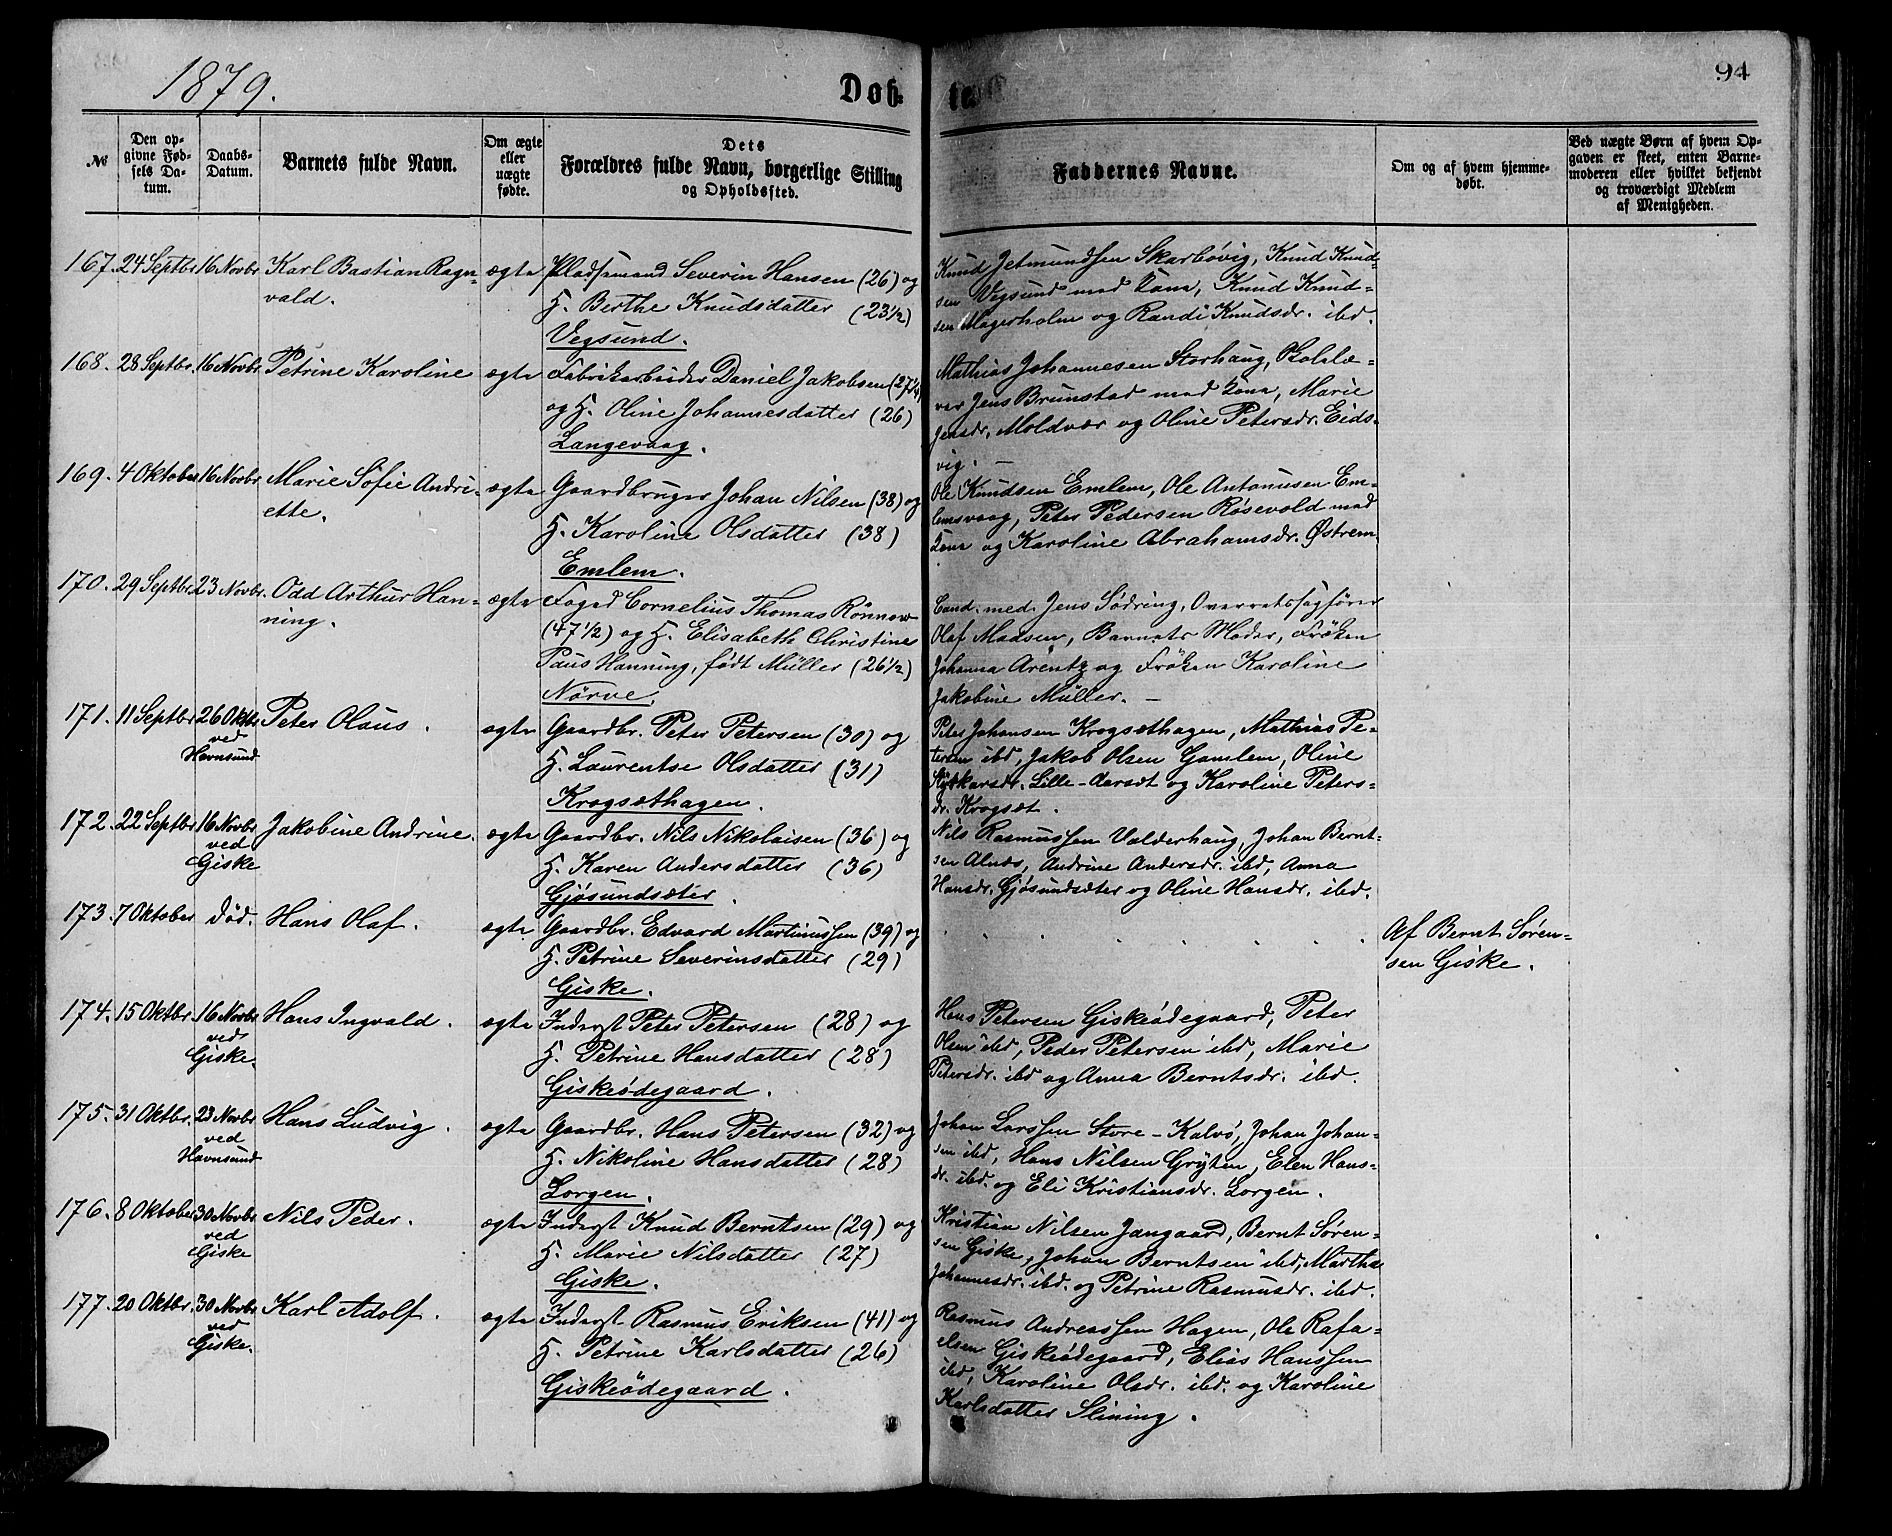 1879.
Døb-
te.
94
№
Den op-
givne Fød-
sels Da-
tum.
Daabs-
Datum.
Barnets fulde Navn.
Om ægte
eller
uægte
fødte.
Dets
Forældres fulde Navn, borgerlige Stilling
og Opholdssted.
Faddernes Navne.
Om og af hvem hjemme-
døbt.
Ved uægte Børn af hvem Op-
gaven er skeet, enten Barne-
moderen eller hvilket bekjendt
og troværdigt Medlem
af Menigheden.
167. 24 Septbr. 16 Novbr. Karl Bastian Ragn-
vald.
ægte Pladsemand Severin Hansen (26) og
H. Berthe Knudsdatter (23½)
Vegsund.
Knud Jetmundsen Skarbøvig, Knud Knud-
sen Vegsund med Kone, Knud Knud-
sen Magerholm og Randi Knudsdr. ibd.
168. 28 Septbr. 16 Novbr. Petrine Karoline
ægte Fabrikarbeider Daniel Jakobsen (27¼)
og H. Oline Johannesdatter (26)
Langevaag.
Mathias Johannesen Storhaug, Skolelæ-
rer Jens Brunstad med Kone, Marie
Jensdr. Moldvær og Oline Petersdr. Eids-
vig. —
169. 4 Oktober 16 Novbr. Marie Sofie Andri-
ette.
ægte Gaardbruger Johan Nilsen (38) og
H. Karoline Olsdatter (38)
Emlem.
Ole Knudsen Emlem, Ole Antonusen Em-
lemsvaag, Peter Pedersen Røsevold med
Kone og Karoline Abrahamsdr. Østrem
170. 29 Septbr. 23 Novbr. Odd Arthur Han-
ning.
ægte Foged Cornelius Thomas Rönnow
(47½) og H. Elisabeth Christine
Paus Hanning, født Müller (26½)
Nörve.
Cand. med. Jens Södring, Overretssagfører
Olaf Madsen, Barnets Moder, Frøken
Johanna Arentz og Frøken Karoline
Jakobine Müller. —
171. 11 Septbr. 26 Oktbr. Peter Olaus.
ved
Havnsund
ægte Gaardbr. Peter Petersen (30) og
H. Laurentse Olsdatter (31)
Krogsæthagen.
Peter Johansen Krogsæthagen, Mathias Pe-
tersen ibd, Jakob Olsen Gamlem, Oline
Lille-Aarsæt og Karoline Peters-
dr. Krogsæt.
172. 22 Septbr. 16 Novbr. Jakobine Andrine.
ved
Giske
ægte Gaardbr. Nils Nikolaisen (36) og
H. Karen Andersdatter (36)
Gjøsundsæter.
Nils Rasmussen Valderhaug, Johan Bernt-
sen Alnæs, Andrine Andersdr. ibd, Anna
Hansdr. Gjøsundsæter og Oline Hansdr. ibd.
173. 7 Oktober død. Hans Olaf.
ægte Gaardbr. Edvard Martinussen (39) og
H. Petrine Severinsdatter (29)
Giske.
Af Bernt Søren-
sen Giske.
174. 15 Oktbr. 16 Novbr. Hans Ingvald.
ved
Giske.
ægte Inderst Peter Petersen (28) og
H. Petrine Hansdatter (28)
Giskeødegaard.
Hans Petersen Giskeødegaard, Peter
Olsen ibd, Peder Petersen ibd, Marie
Petersdr. ibd og Anna Berntsdr. ibd.
175. 31 Oktbr. 23 Novbr. Hans Ludvig.
ved
Havnsund
ægte Gaardbr. Hans Petersen (32) og
H. Nikoline Hansdatter (28)
Lorgen.
Johan Larssen Store-Kalvø, Johan Johan-
sen ibd, Hans Nilsen Gryten, Elen Hans-
dr. ibd. og Eli Kristiansdr. Lorgen.
176. 8 Oktober 30 Novbr. Nils Peder.
ved
Giske
ægte Inderst Knud Berntsen (29) og
H. Marie Nilsdatter (27)
Giske.
Kristian Nilsen Jangaard, Bernt Søren-
sen Giske, Johan Berntsen ibd, Martha
Johannesdr. ibd. og Petrine Rasmusdr. ibd.
177. 20 Oktbr. 30 Novbr. Karl Adolf.
ved
Giske.
ægte Inderst Rasmus Eriksen (41) og
H. Petrine Karlsdatter (26)
Giskeødegaard.
Rasmus Andreassen Hagen, Ole Rafa-
elsen Giskeødegaard, Elias Hanssen
ibd, Karoline Olsdr. ibd. og Karoline
Karlsdatter Slining.